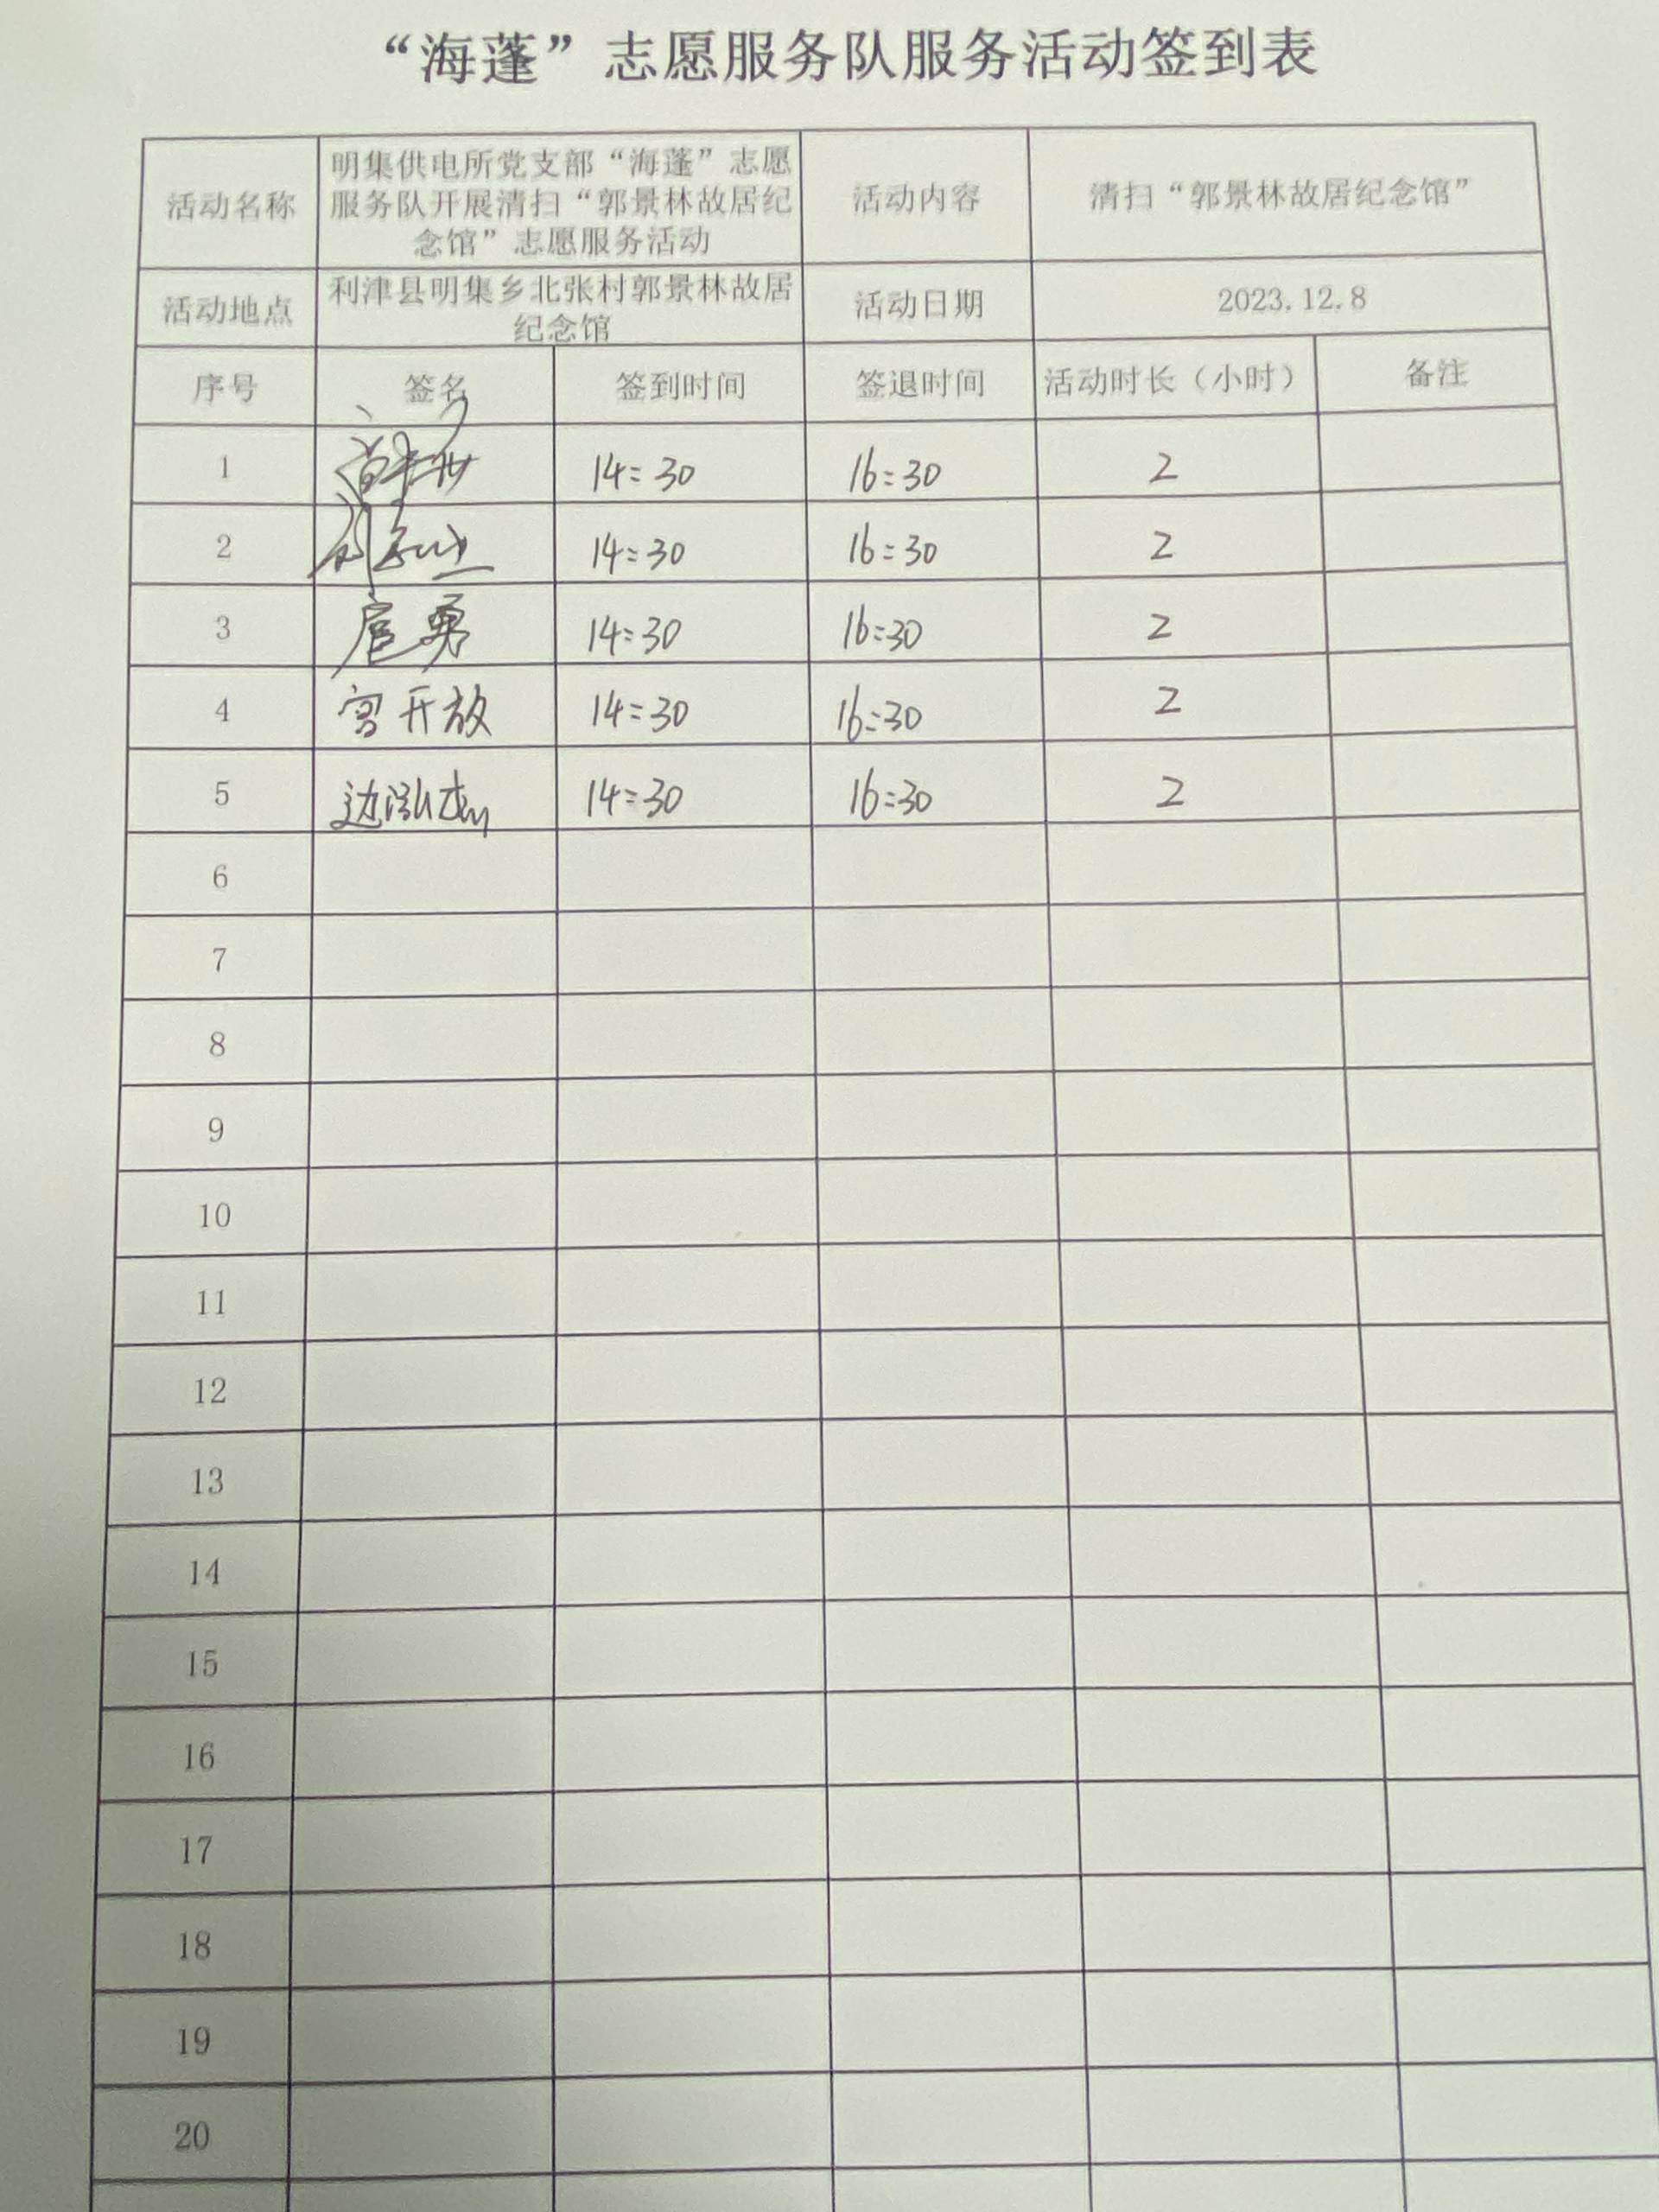 “海蓬”志愿服务队服务活动签到表
活动名称 明集供电所党支部“海蓬”志愿 活动内容 清扫“郭景林故居纪念馆”
服务队开展清扫“郭景林故居纪
念馆”志愿服务活动
活动地点 利津县明集乡北张村郭景林故居 活动日期 2023.12.8
纪念馆
序号 签名 签到时间 签退时间 活动时长（小时） 备注
1 14:30 16:30 2
2 14:30 16:30 2
3 扈勇 14:30 16:30 2
4 宫开放 14:30 16:30 2
5 边泓 14:30 16:30 2
6
7
8
9
10
11
12
13
14
15
16
17
18
19
20